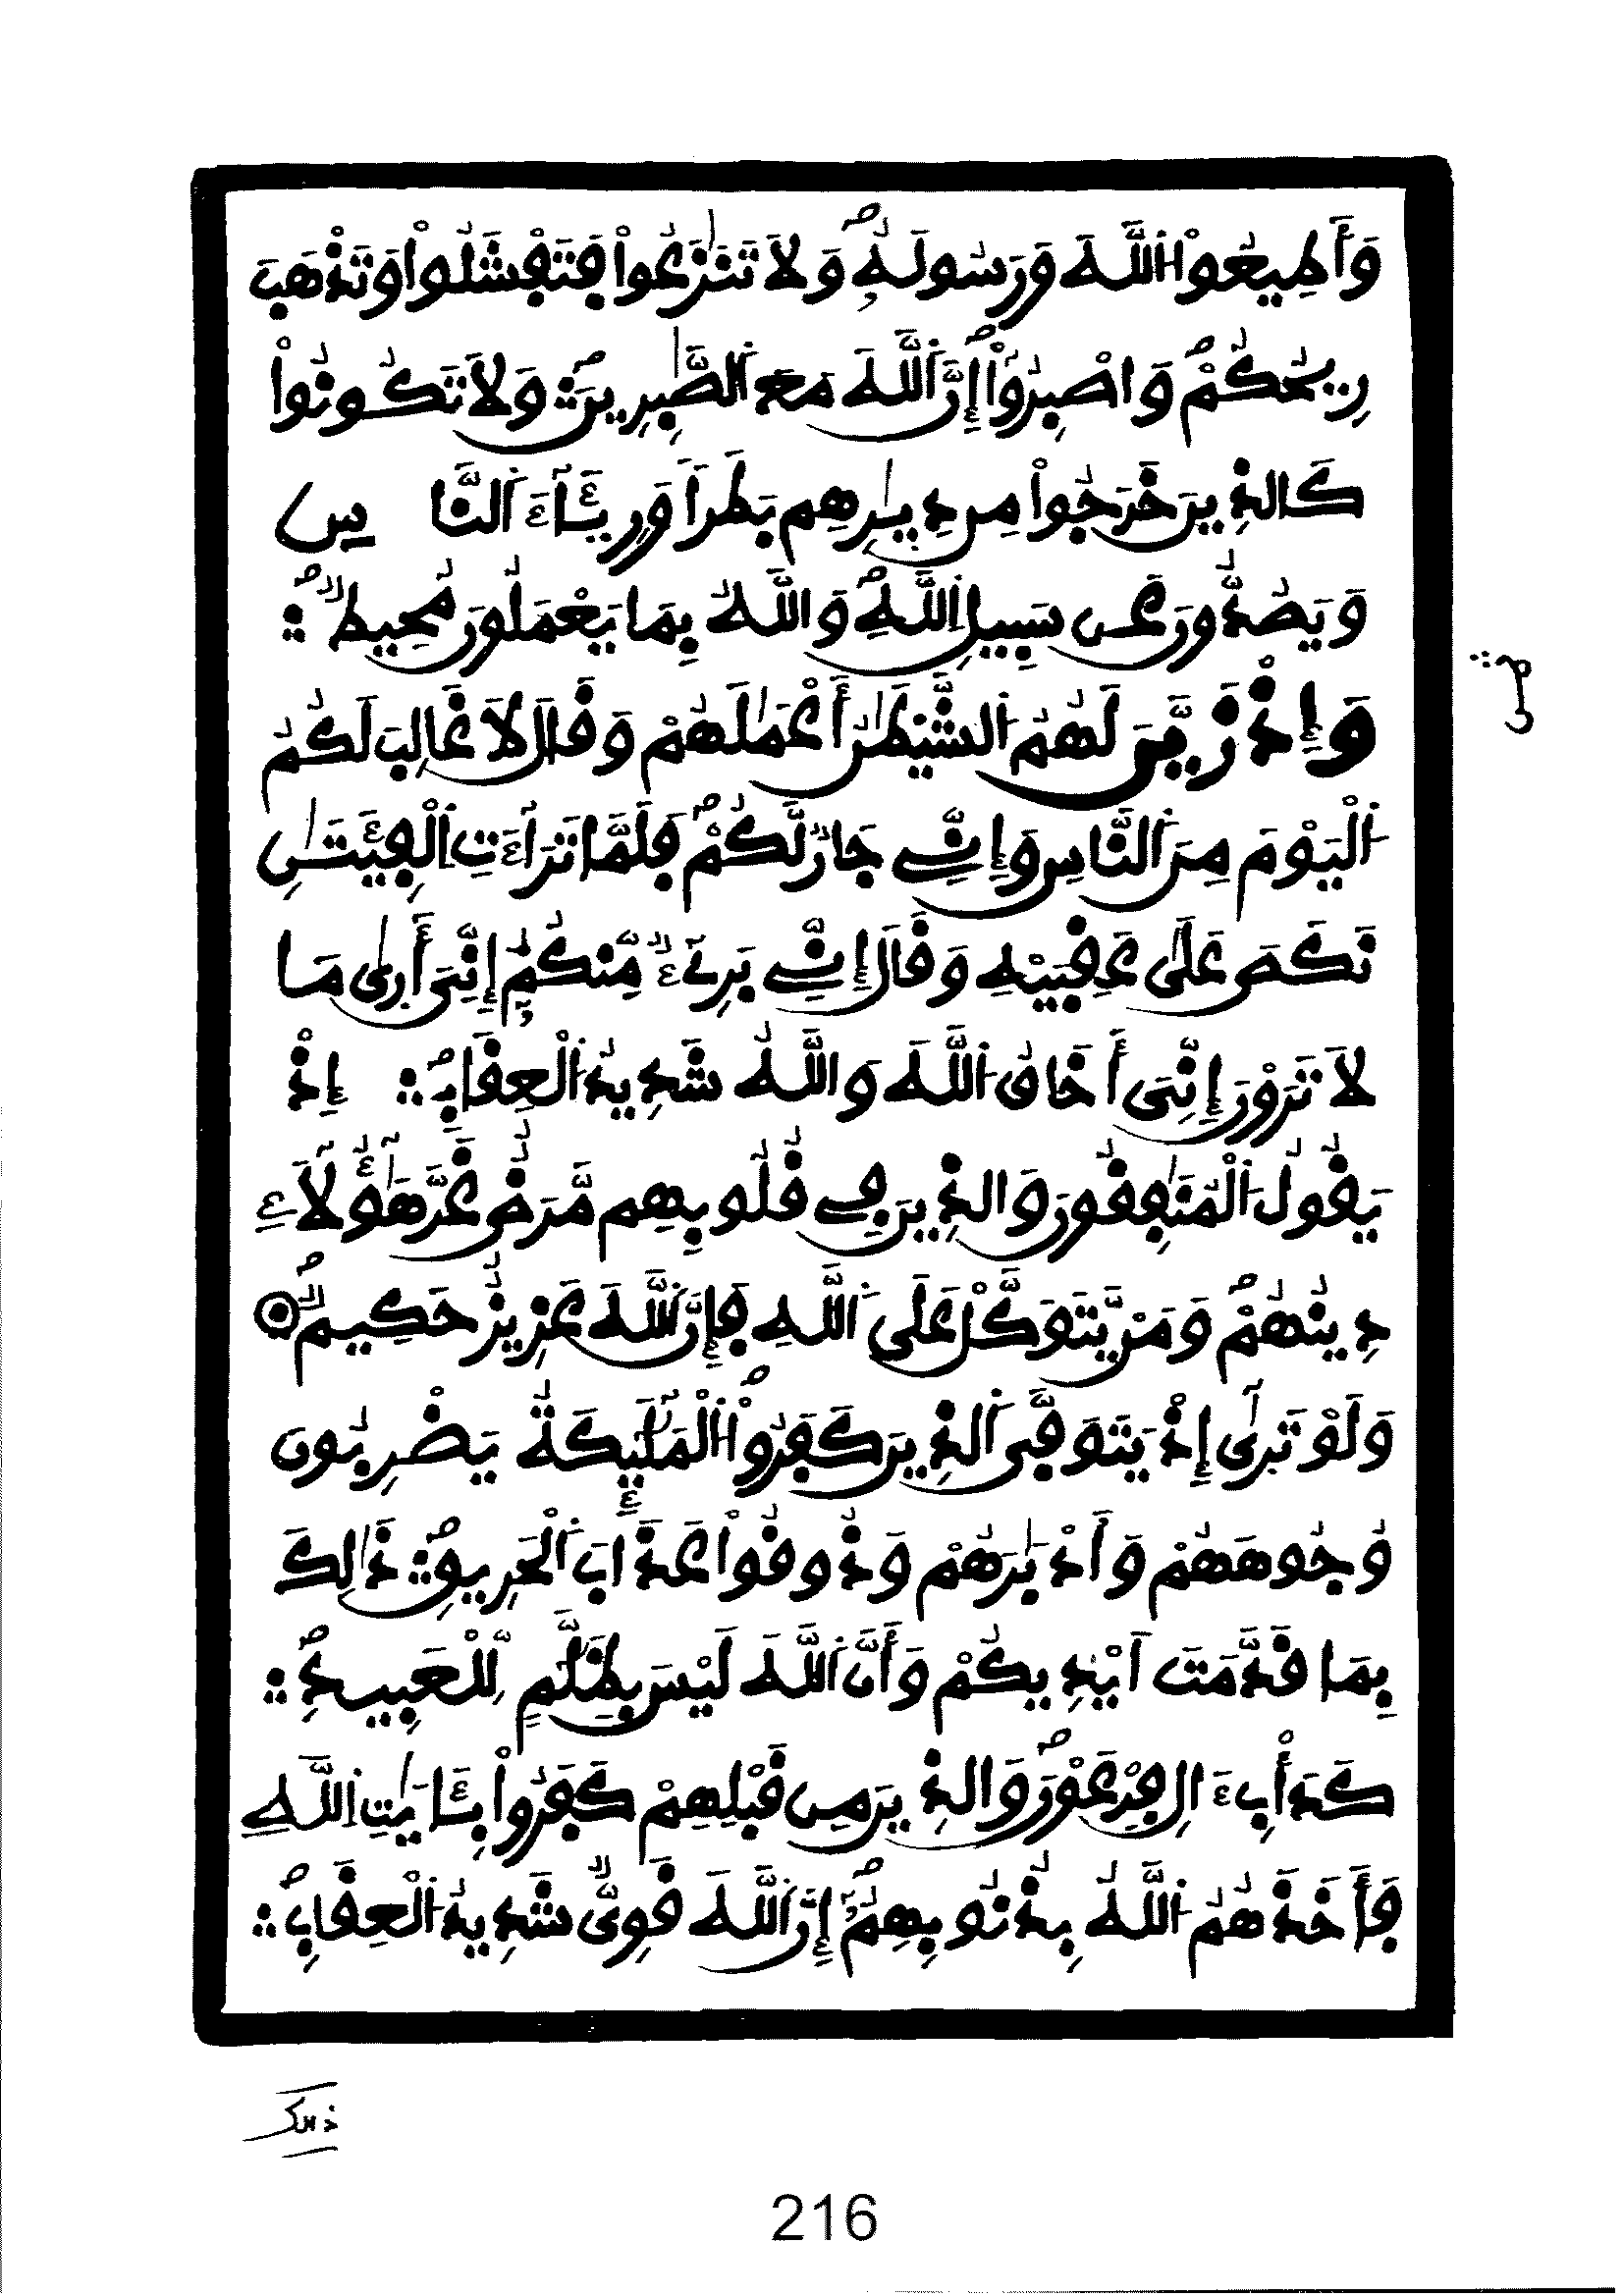 وَأَطِيعُواْ اُللَّهَ وَرَسُولَهُۥ وَلَا تَنَٰزَعُواْ فَتَفْشَلُواْ وَتَذْهَبَ
رِيحُكُمْ وَاصْبِرُوٓاْ إِنَّ اَللَّهَ مَعَ اَلصَّٰبِرِينَ وَلَا تَكُونُواْ
كَالذِينَ خَرَجُواْ مِن دِيٰرِهِم بَطَراٗ وَرِئَآءَ اَلنَّاسِ
وَيَصُدُّونَ عَن سَبِيلِ اِللَّهِ وَاللَّهُ بِمَا يَعْمَلُونَ مُحِيطٞ
وَإِذْ زَيَّنَ لَهُمُ اُلشَّيْطَٰنُ أَعْمَٰلَهُمْ وَقَالَ لَا غَالِبَ لَكُمُ
اُلْيَوْمَ مِنَ اَلنَّاسِ وَإِنِّے جَارٞ لَّكُمْ فَلَمَّا تَرَآءَتِ اِلْفِئَتَٰنِ
نَكَصَ عَلَىٰ عَقِبَيْهِ وَقَالَ إِنِّے بَرِےٓءٞ مِّنكُمُۥٓ إِنِّيَ أَرىٰ مَا
لَا تَرَوْنَ إِنِّيَ أَخَافُ اُللَّهَ وَاللَّهُ شَدِيدُ اُلْعِقَابِ إِذْ
يَقُولُ اُلْمُنَٰفِقُونَ وَالذِينَ فِے قُلُوبِهِم مَّرَضٌ غَرَّ هَٰٓؤُلَآءِ
دِينُهُمْ وَمَنْ يَّتَوَكَّلْ عَلَى اَللَّهِ فَإِنَّ اَللَّهَ عَزِيزٌ حَكِيمٞ
وَلَوْ تَرىٰٓ إِذْ يَتَوَفَّى اَلذِينَ كَفَرُواْ اُلْمَلَٰٓئِكَةُ يَضْرِبُونَ
وُجُوهَهُمْ وَأَدْبَٰرَهُمْ وَذُوقُواْ عَذَابَ اَلْحَرِيقِ ذَٰلِكَ
بِمَا قَدَّمَتَ اَيْدِيكُمْ وَأَنَّ اَللَّهَ لَيْسَ بِظَلَّٰمٍ لِّلْعَبِيدِ
كَدَأْبِ ءَالِ فِرْعَوْنَ وَالذِينَ مِن قَبْلِهِمْ كَفَرُواْ بِـَٔايَٰتِ اِللَّهِ
فَأَخَذَهُمُ اُللَّهُ بِذُنُوبِهِمُۥٓ إِنَّ اَللَّهَ قَوِيّٞ شَدِيدُ اُلْعِقَابِ
ذالك
216